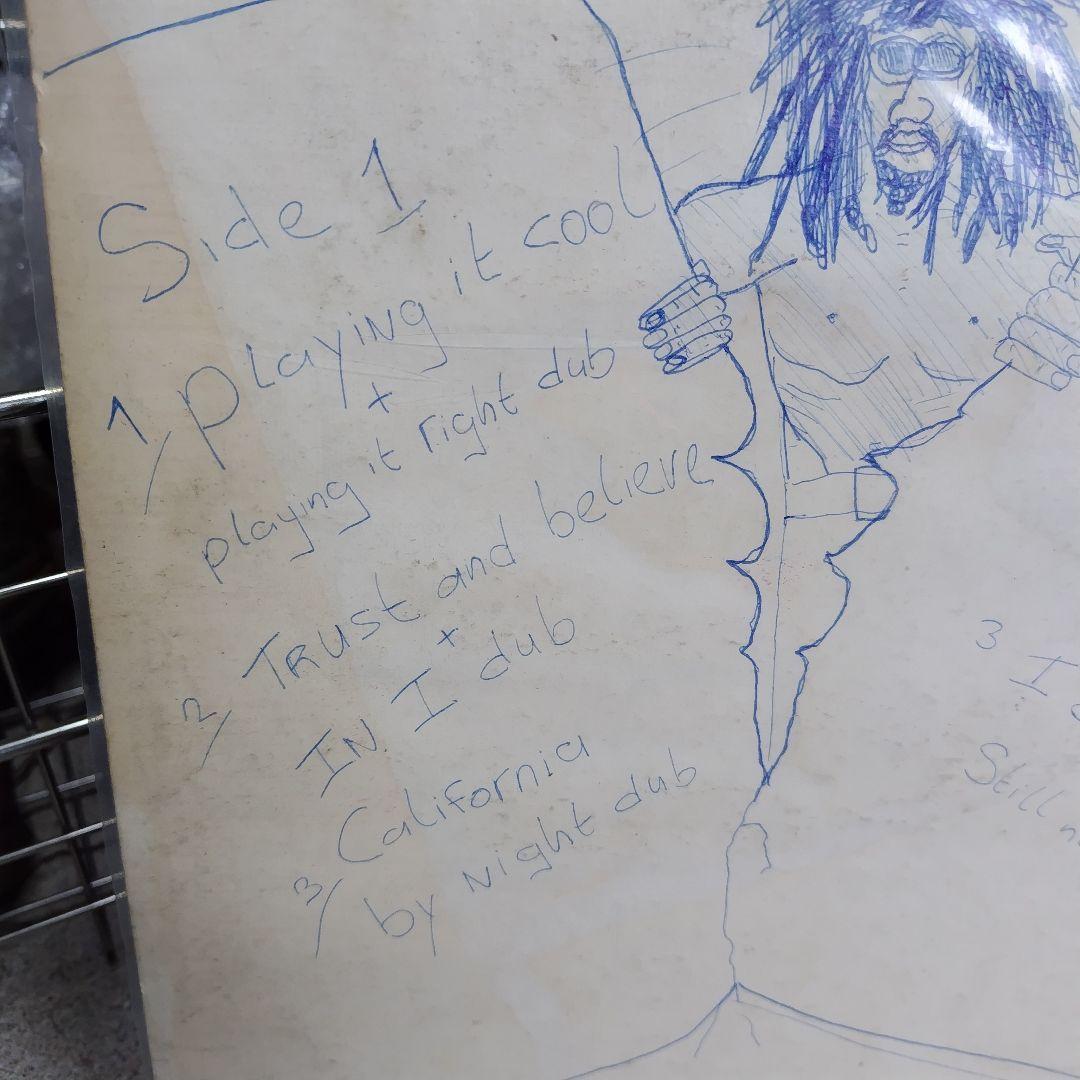 Side 1
1/ Playing it cool
+
playing it right dub
2/ Trust and believe
+
IN I dub
3/ California
by Night dub
3 I
Still